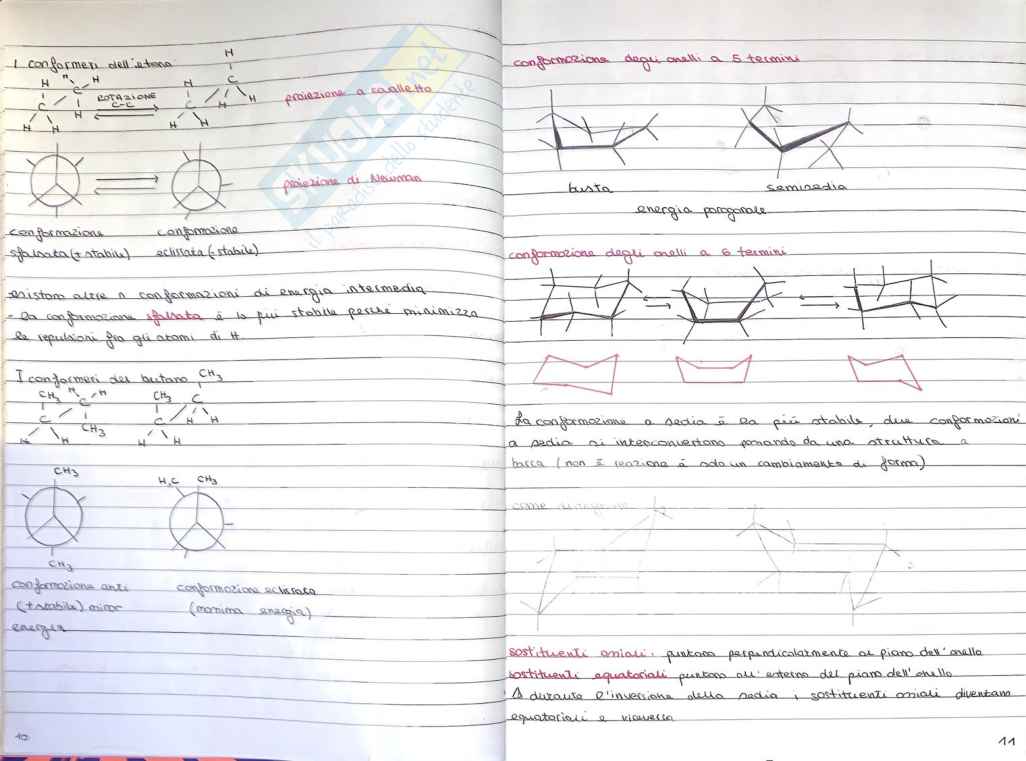 I conformeri dell'etano
H H H
C C
H
H H
ROTAZIONE
C-C
H
C
H
C H H
H H
proiezione a cavalletto
proiezione di Newman
conformazione conformazione
sfalsata (+ stabile) eclissata (- stabile)
esistono altre n conformazioni di energia intermedia
- la conformazione sfalsata è la più stabile perché minimizza
le repulsioni fra gli atomi di H.
I conformeri del butano
CH3 H H
C C
CH3
H H
CH3
CH3 C
C H H
H H
CH3
CH3
H3C CH3
conformazione anti conformazione eclissata
(+ stabile) minor (massima energia)
energia
10
conformazione degli anelli a 5 termini
busta semisedia
energia paragonabile
conformazione degli anelli a 6 termini
La conformazione a sedia è la più stabile, due conformazioni
a sedia si interconvertono passando da una struttura a
barca (non è reazione è solo un cambiamento di forma)
come
sostituenti assiali: puntano perpendicolarmente al piano dell'anello
sostituenti equatoriali puntano all'esterno del piano dell'anello
⚠ durante l'inversione della sedia, sostituenti assiali diventano
equatoriali e viceversa
11
SKUOLA.net
il paradiso dello studente